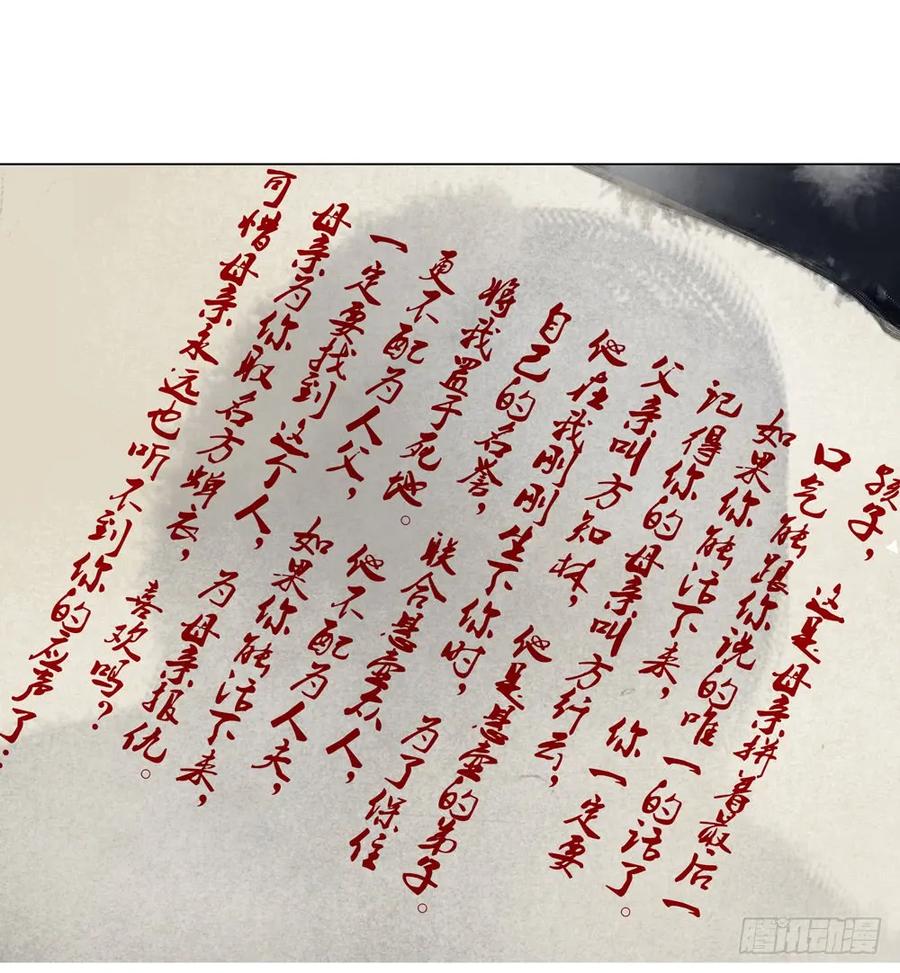 孩子，这是母亲拼着最后一
口气能跟你说的唯一的话了。
如果你能活下来，你一定要
记得你的母亲叫方行云，
父亲叫方知林，他是悬壶的弟子。
他在我刚刚生下你时，为了保住
自己的名誉，联合悬壶众人，
将我置于死地。他不配为人夫，
更不配为人父，如果你能活下来，
一定要找到这个人，为母亲报仇。
母亲为你取名方蝉衣，喜欢吗？
可惜母亲永远也听不到你的应声了…
腾讯动漫